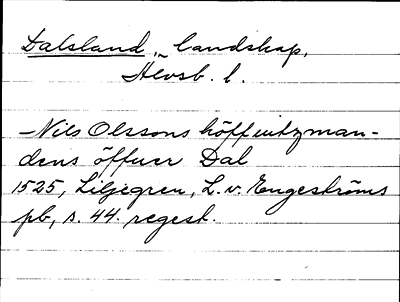 Dalsland, landskap,
Älvsb. l.
Nils Olssons höffuitzman-
dens öffuer Dal
1525, Liljegren, L. v. Engeströms
pb, s. 44. regest.